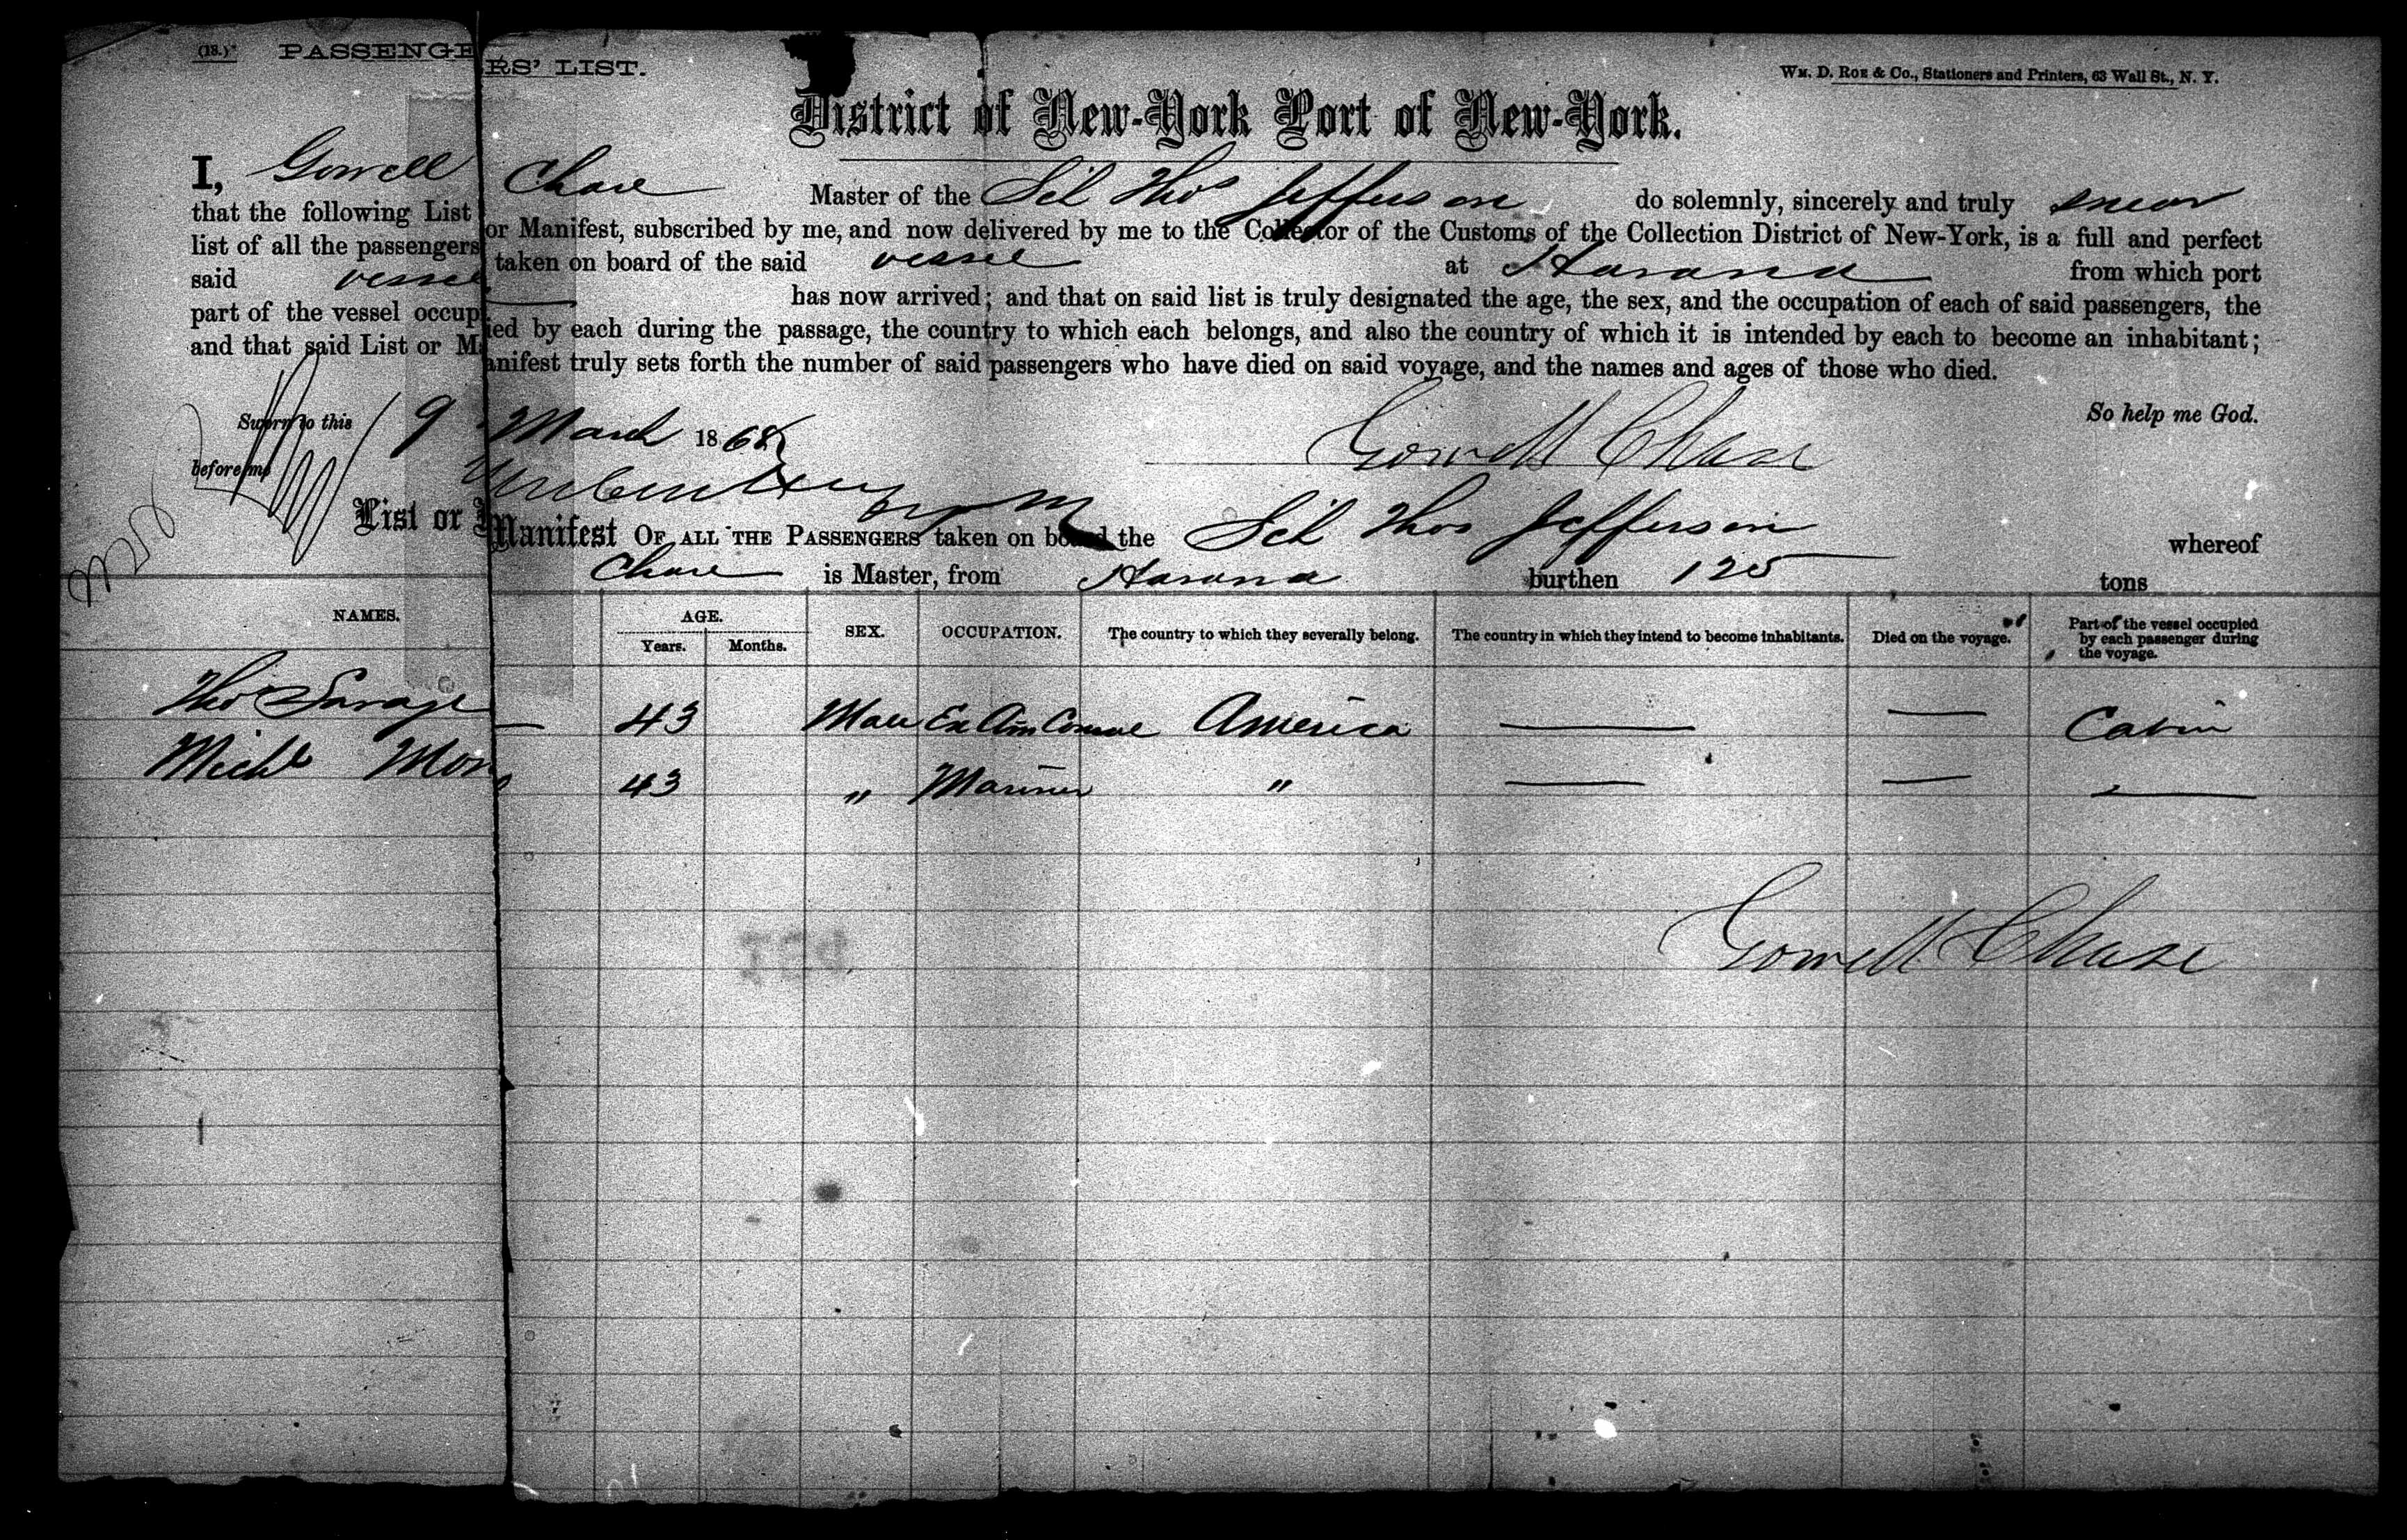 (18.) PASSENGERS' LIST. Wm. D. Roe & Co., Stationers and Printers, 63 Wall St., N. Y.
District of New-York Port of New-York.
I, Gowell Chase Master of the Sch Thos Jefferson do solemnly, sincerely and truly swear
that the following List or Manifest, subscribed by me, and now delivered by me to the Collector of the Customs of the Collection District of New-York, is a full and perfect
list of all the passengers taken on board of the said vessel at Havana from which port
said vessel has now arrived; and that on said list is truly designated the age, the sex, and the occupation of each of said passengers, the
part of the vessel occupied by each during the passage, the country to which each belongs, and also the country of which it is intended by each to become an inhabitant;
and that said List or Manifest truly sets forth the number of said passengers who have died on said voyage, and the names and ages of those who died.
So help me God.
Sworn to this 9 March 1868
Gowell Chase
before me
List or Manifest OF ALL THE PASSENGERS taken on board the Sch Thos Jefferson whereof
Chase is Master, from Havana burthen 125 tons
NAMES. AGE. Years. Months. SEX. OCCUPATION. The country to which they severally belong. The country in which they intend to become inhabitants. Died on the voyage. Part of the vessel occupied by each passenger during the voyage.
Thos Savage — 43 Male Ex Am Consul America — — Cabin
Michl 43 " Mariner " — — —
Gowell Chase